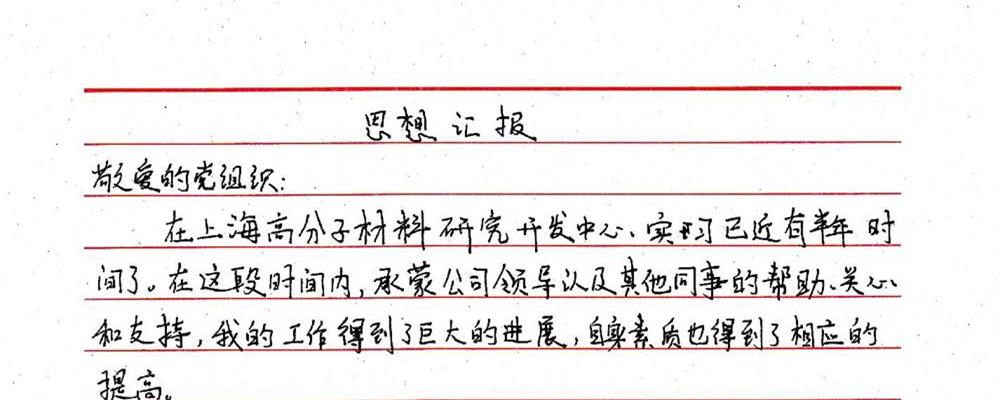 思想汇报
敬爱的党组织：
在上海高分子材料研究开发中心实习已近有半年时
间了。在这段时间内，承蒙公司领导以及其他同事的帮助、关心、
和支持，我的工作得到了巨大的进展，自身素质也得到了相应的
提高。